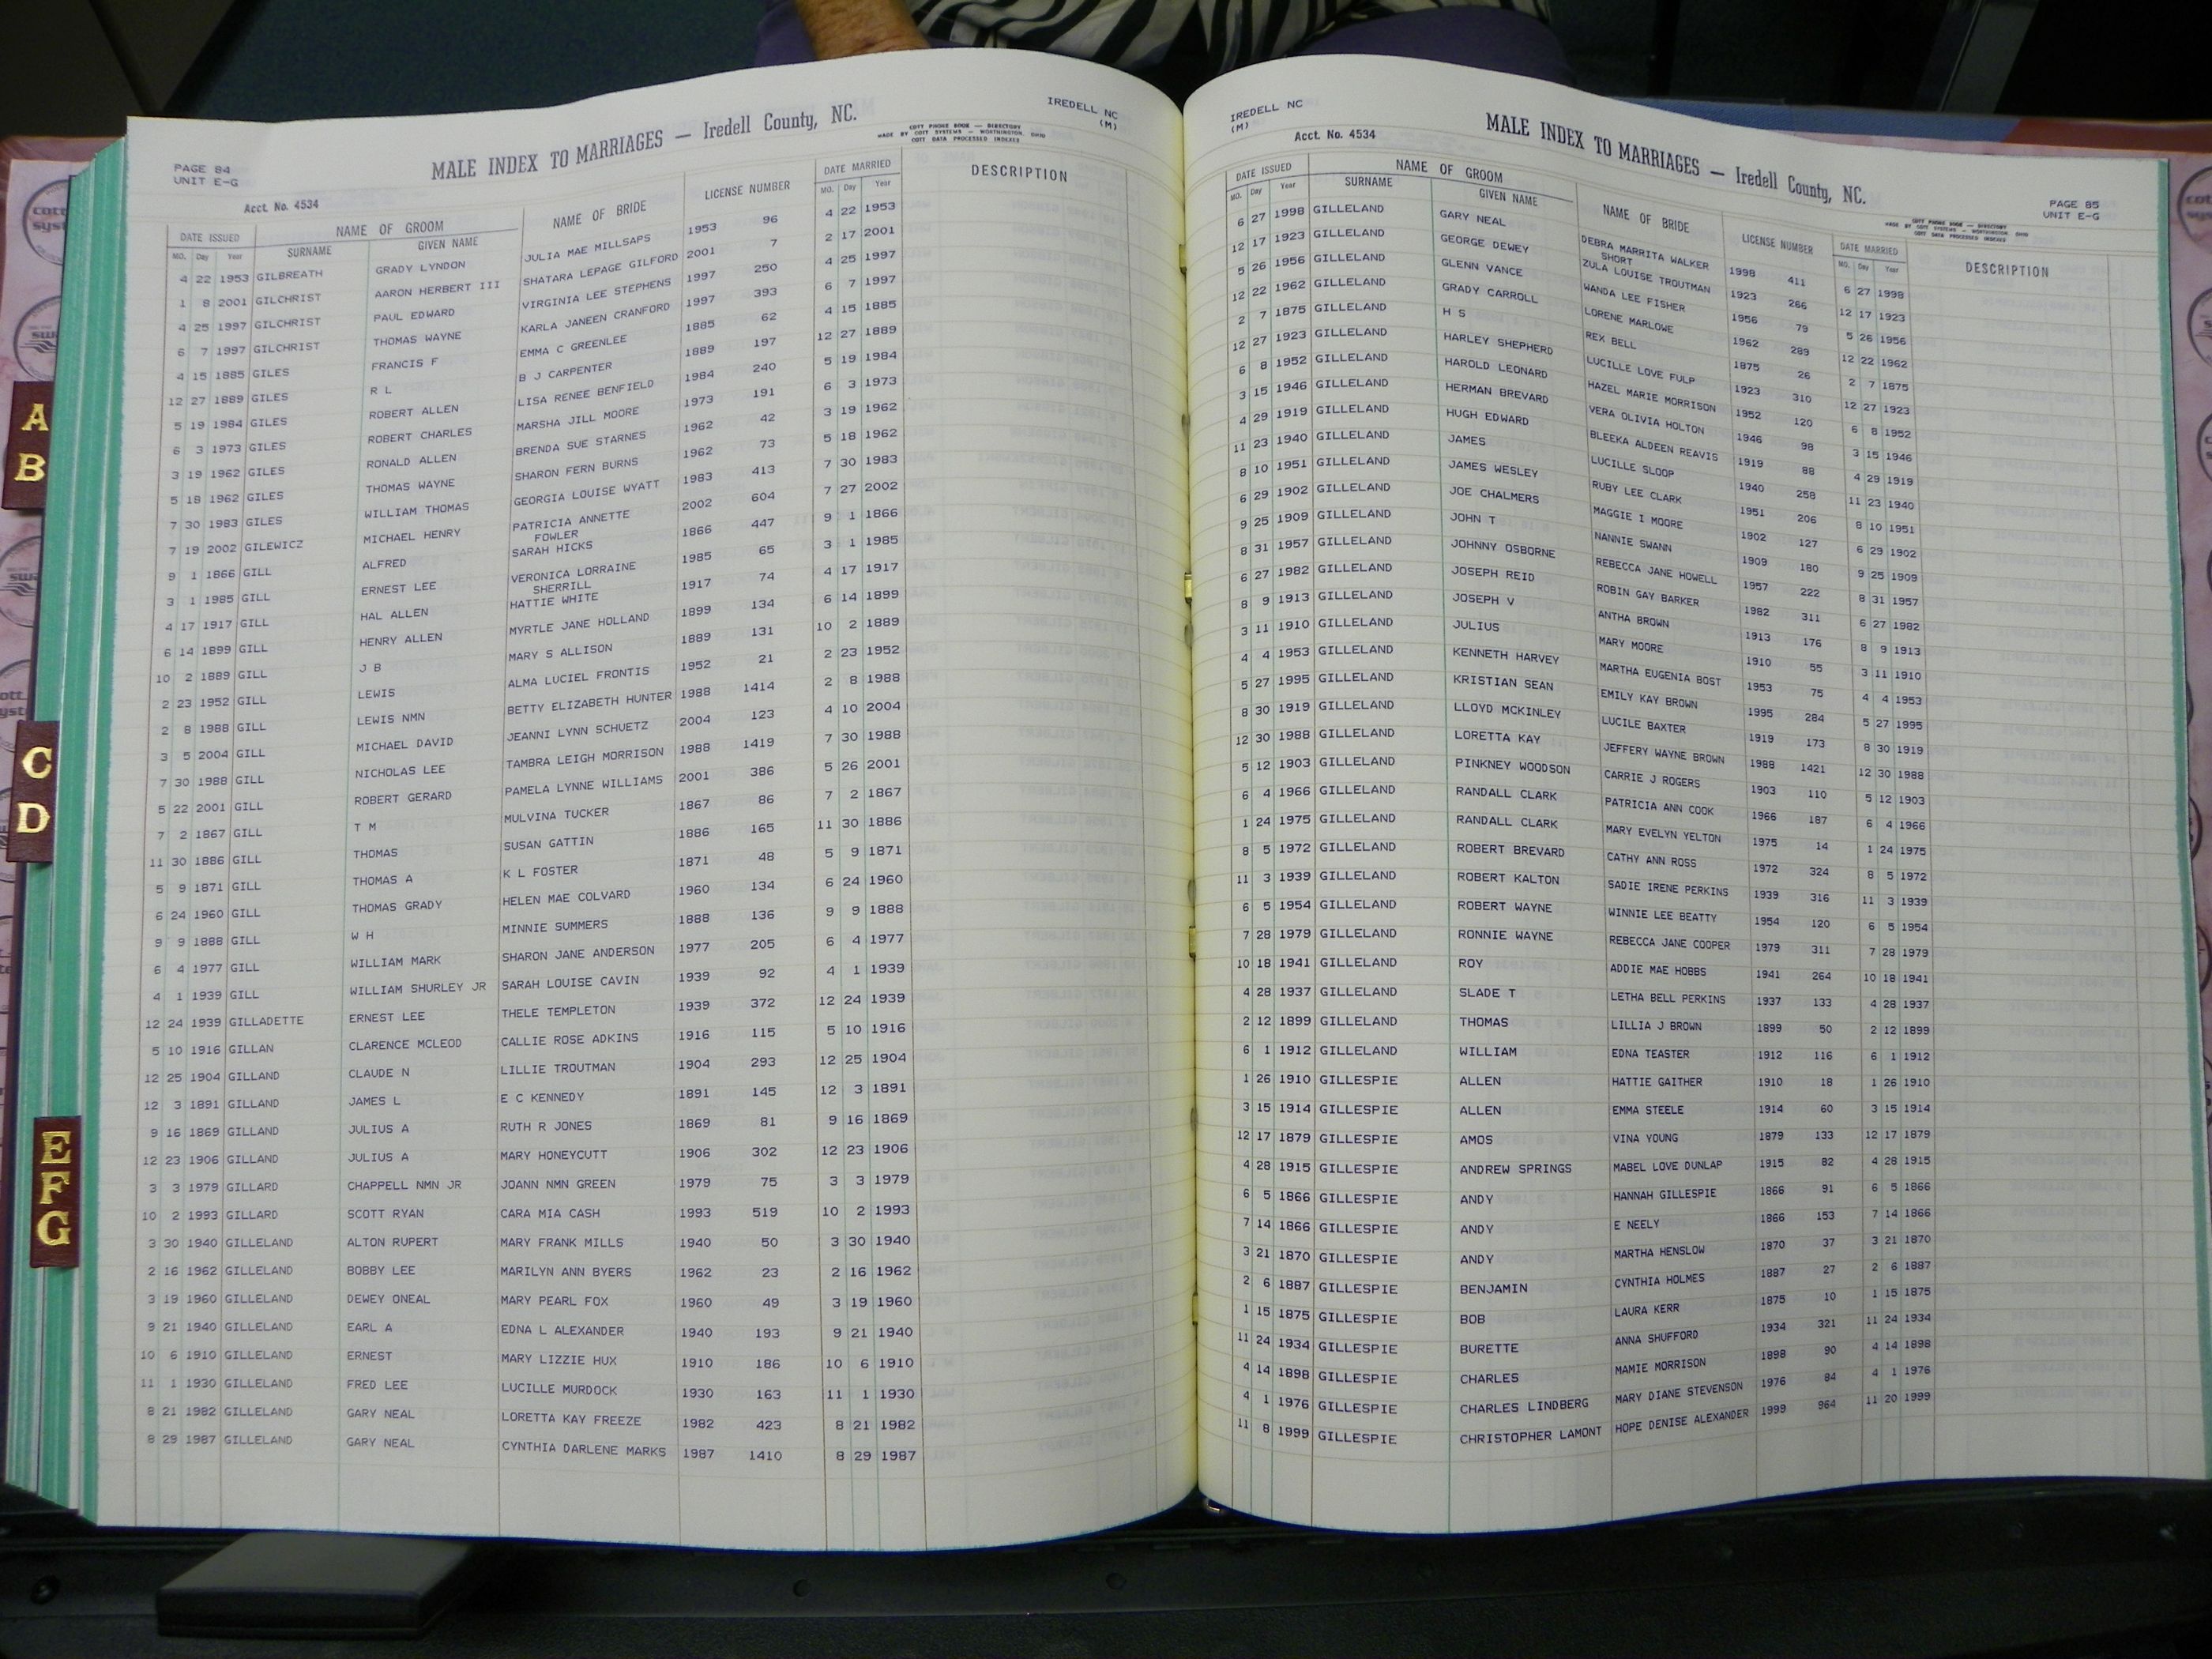 PAGE 84
UNIT E-G
Acct. No. 4534
MALE INDEX TO MARRIAGES — Iredell County, NC.
COTT PHONEE BOOK — DIRECTORY
MADE BY COTT SYSTEMS — WORTHINGTON, OHIO
COTT DATA PROCESSED INDEXES
IREDELL NC
(M)
DATE ISSUED NAME OF GROOM NAME OF BRIDE LICENSE NUMBER DATE MARRIED DESCRIPTION
MO. Day Year SURNAME GIVEN NAME MO. Day Year
4 22 1953 GILBREATH GRADY LYNDON JULIA MAE MILLSAPS 1953 96 4 22 1953
1 8 2001 GILCHRIST AARON HERBERT III SHATARA LEPAGE GILFORD 2001 7 2 17 2001
4 25 1997 GILCHRIST PAUL EDWARD VIRGINIA LEE STEPHENS 1997 250 4 25 1997
6 7 1997 GILCHRIST THOMAS WAYNE KARLA JANEEN CRANFORD 1997 393 6 7 1997
4 15 1885 GILES FRANCIS F EMMA C GREENLEE 1885 62 4 15 1885
12 27 1889 GILES R L B J CARPENTER 1889 197 12 27 1889
5 19 1984 GILES ROBERT ALLEN LISA RENEE BENFIELD 1984 240 5 19 1984
6 3 1973 GILES ROBERT CHARLES MARSHA JILL MOORE 1973 191 6 3 1973
3 19 1962 GILES RONALD ALLEN BRENDA SUE STARNES 1962 42 3 19 1962
5 18 1962 GILES THOMAS WAYNE SHARON FERN BURNS 1962 73 5 18 1962
7 30 1983 GILES WILLIAM THOMAS GEORGIA LOUISE WYATT 1983 413 7 30 1983
7 19 2002 GILEWICZ MICHAEL HENRY PATRICIA ANNETTE 2002 604 7 27 2002
FOWLER
9 1 1866 GILL ALFRED SARAH HICKS 1866 447 9 1 1866
3 1 1985 GILL ERNEST LEE VERONICA LORRAINE 1985 65 3 1 1985
SHERRILL
4 17 1917 GILL HAL ALLEN HATTIE WHITE 1917 74 4 17 1917
6 14 1899 GILL HENRY ALLEN MYRTLE JANE HOLLAND 1899 134 6 14 1899
10 2 1889 GILL J B MARY S ALLISON 1889 131 10 2 1889
2 23 1952 GILL LEWIS ALMA LUCIEL FRONTIS 1952 21 2 23 1952
2 8 1988 GILL LEWIS NMN BETTY ELIZABETH HUNTER 1988 1414 2 8 1988
3 5 2004 GILL MICHAEL DAVID JEANNI LYNN SCHUETZ 2004 123 4 10 2004
7 30 1988 GILL NICHOLAS LEE TAMBRA LEIGH MORRISON 1988 1419 7 30 1988
5 22 2001 GILL ROBERT GERARD PAMELA LYNNE WILLIAMS 2001 386 5 26 2001
7 2 1867 GILL T M MULVINA TUCKER 1867 86 7 2 1867
11 30 1886 GILL THOMAS SUSAN GATTIN 1886 165 11 30 1886
5 9 1871 GILL THOMAS A K L FOSTER 1871 48 5 9 1871
6 24 1960 GILL THOMAS GRADY HELEN MAE COLVARD 1960 134 6 24 1960
9 9 1888 GILL W H MINNIE SUMMERS 1888 136 9 9 1888
6 4 1977 GILL WILLIAM MARK SHARON JANE ANDERSON 1977 205 6 4 1977
4 1 1939 GILL WILLIAM SHURLEY JR SARAH LOUISE CAVIN 1939 92 4 1 1939
12 24 1939 GILLADETTE ERNEST LEE THELE TEMPLETON 1939 372 12 24 1939
5 10 1916 GILLAN CLARENCE MCLEOD CALLIE ROSE ADKINS 1916 115 5 10 1916
12 25 1904 GILLAND CLAUDE N LILLIE TROUTMAN 1904 293 12 25 1904
12 3 1891 GILLAND JAMES L E C KENNEDY 1891 145 12 3 1891
9 16 1869 GILLAND JULIUS A RUTH R JONES 1869 81 9 16 1869
12 23 1906 GILLAND JULIUS A MARY HONEYCUTT 1906 302 12 23 1906
3 3 1979 GILLARD CHAPPELL NMN JR JOANN NMN GREEN 1979 75 3 3 1979
10 2 1993 GILLARD SCOTT RYAN CARA MIA CASH 1993 519 10 2 1993
3 30 1940 GILLELAND ALTON RUPERT MARY FRANK MILLS 1940 50 3 30 1940
2 16 1962 GILLELAND BOBBY LEE MARILYN ANN BYERS 1962 23 2 16 1962
3 19 1960 GILLELAND DEWEY ONEAL MARY PEARL FOX 1960 49 3 19 1960
9 21 1940 GILLELAND EARL A EDNA L ALEXANDER 1940 193 9 21 1940
10 6 1910 GILLELAND ERNEST MARY LIZZIE HUX 1910 186 10 6 1910
11 1 1930 GILLELAND FRED LEE LUCILLE MURDOCK 1930 163 11 1 1930
8 21 1982 GILLELAND GARY NEAL LORETTA KAY FREEZE 1982 423 8 21 1982
8 29 1987 GILLELAND GARY NEAL CYNTHIA DARLENE MARKS 1987 1410 8 29 1987
IREDELL NC
(M)
Acct. No. 4534
MALE INDEX TO MARRIAGES — Iredell County, NC.
PAGE 85
UNIT E-G
MADE BY COTT SYSTEMS — WORTHINGTON, OHIO
COTT DATA PROCESSED INDEXES
DATE ISSUED NAME OF GROOM NAME OF BRIDE LICENSE NUMBER DATE MARRIED DESCRIPTION
MO. Day Year SURNAME GIVEN NAME MO. Day Year
6 27 1998 GILLELAND GARY NEAL DEBRA MARRITA WALKER 1998 411 6 27 1998
SHORT
12 17 1923 GILLELAND GEORGE DEWEY ZULA LOUISE TROUTMAN 1923 266 12 17 1923
5 26 1956 GILLELAND GLENN VANCE WANDA LEE FISHER 1956 79 5 26 1956
12 22 1962 GILLELAND GRADY CARROLL LORENE MARLOWE 1962 289 12 22 1962
2 7 1875 GILLELAND H S REX BELL 1875 26 2 7 1875
12 27 1923 GILLELAND HARLEY SHEPHERD LUCILLE LOVE FULP 1923 310 12 27 1923
6 8 1952 GILLELAND HAROLD LEONARD HAZEL MARIE MORRISON 1952 120 6 8 1952
3 15 1946 GILLELAND HERMAN BREVARD VERA OLIVIA HOLTON 1946 98 3 15 1946
4 29 1919 GILLELAND HUGH EDWARD BLEEKA ALDEEN REAVIS 1919 88 4 29 1919
11 23 1940 GILLELAND JAMES LUCILLE SLOOP 1940 258 11 23 1940
8 10 1951 GILLELAND JAMES WESLEY RUBY LEE CLARK 1951 206 8 10 1951
6 29 1902 GILLELAND JOE CHALMERS MAGGIE I MOORE 1902 127 6 29 1902
9 25 1909 GILLELAND JOHN T NANNIE SWANN 1909 180 9 25 1909
8 31 1957 GILLELAND JOHNNY OSBORNE REBECCA JANE HOWELL 1957 222 8 31 1957
6 27 1982 GILLELAND JOSEPH REID ROBIN GAY BARKER 1982 311 6 27 1982
8 9 1913 GILLELAND JOSEPH V ANTHA BROWN 1913 176 8 9 1913
3 11 1910 GILLELAND JULIUS MARY MOORE 1910 55 3 11 1910
4 4 1953 GILLELAND KENNETH HARVEY MARTHA EUGENIA BOST 1953 75 4 4 1953
5 27 1995 GILLELAND KRISTIAN SEAN EMILY KAY BROWN 1995 284 5 27 1995
8 30 1919 GILLELAND LLOYD MCKINLEY LUCILE BAXTER 1919 173 8 30 1919
12 30 1988 GILLELAND LORETTA KAY JEFFERY WAYNE BROWN 1988 1421 12 30 1988
5 12 1903 GILLELAND PINKNEY WOODSON CARRIE J ROGERS 1903 110 5 12 1903
6 4 1966 GILLELAND RANDALL CLARK PATRICIA ANN COOK 1966 187 6 4 1966
1 24 1975 GILLELAND RANDALL CLARK MARY EVELYN YELTON 1975 14 1 24 1975
8 5 1972 GILLELAND ROBERT BREVARD CATHY ANN ROSS 1972 324 8 5 1972
11 3 1939 GILLELAND ROBERT KALTON SADIE IRENE PERKINS 1939 316 11 3 1939
6 5 1954 GILLELAND ROBERT WAYNE WINNIE LEE BEATTY 1954 120 6 5 1954
7 28 1979 GILLELAND RONNIE WAYNE REBECCA JANE COOPER 1979 311 7 28 1979
10 18 1941 GILLELAND ROY ADDIE MAE HOBBS 1941 264 10 18 1941
4 28 1937 GILLELAND SLADE T LETHA BELL PERKINS 1937 133 4 28 1937
2 12 1899 GILLELAND THOMAS LILLIA J BROWN 1899 50 2 12 1899
6 1 1912 GILLELAND WILLIAM EDNA TEASTER 1912 116 6 1 1912
1 26 1910 GILLESPIE ALLEN HATTIE GAITHER 1910 18 1 26 1910
3 15 1914 GILLESPIE ALLEN EMMA STEELE 1914 60 3 15 1914
12 17 1879 GILLESPIE AMOS VINA YOUNG 1879 133 12 17 1879
4 28 1915 GILLESPIE ANDREW SPRINGS MABEL LOVE DUNLAP 1915 82 4 28 1915
6 5 1866 GILLESPIE ANDY HANNAH GILLESPIE 1866 91 6 5 1866
7 14 1866 GILLESPIE ANDY E NEELY 1866 153 7 14 1866
3 21 1870 GILLESPIE ANDY MARTHA HENSLOW 1870 37 3 21 1870
2 6 1887 GILLESPIE BENJAMIN CYNTHIA HOLMES 1887 27 2 6 1887
1 15 1875 GILLESPIE BOB LAURA KERR 1875 10 1 15 1875
11 24 1934 GILLESPIE BURETTE ANNA SHUFFORD 1934 321 11 24 1934
4 14 1898 GILLESPIE CHARLES MAMIE MORRISON 1898 90 4 14 1898
4 1 1976 GILLESPIE CHARLES LINDBERG MARY DIANE STEVENSON 1976 84 4 1 1976
11 8 1999 GILLESPIE CHRISTOPHER LAMONT HOPE DENISE ALEXANDER 1999 964 11 20 1999
A
B
C
D
E
F
G